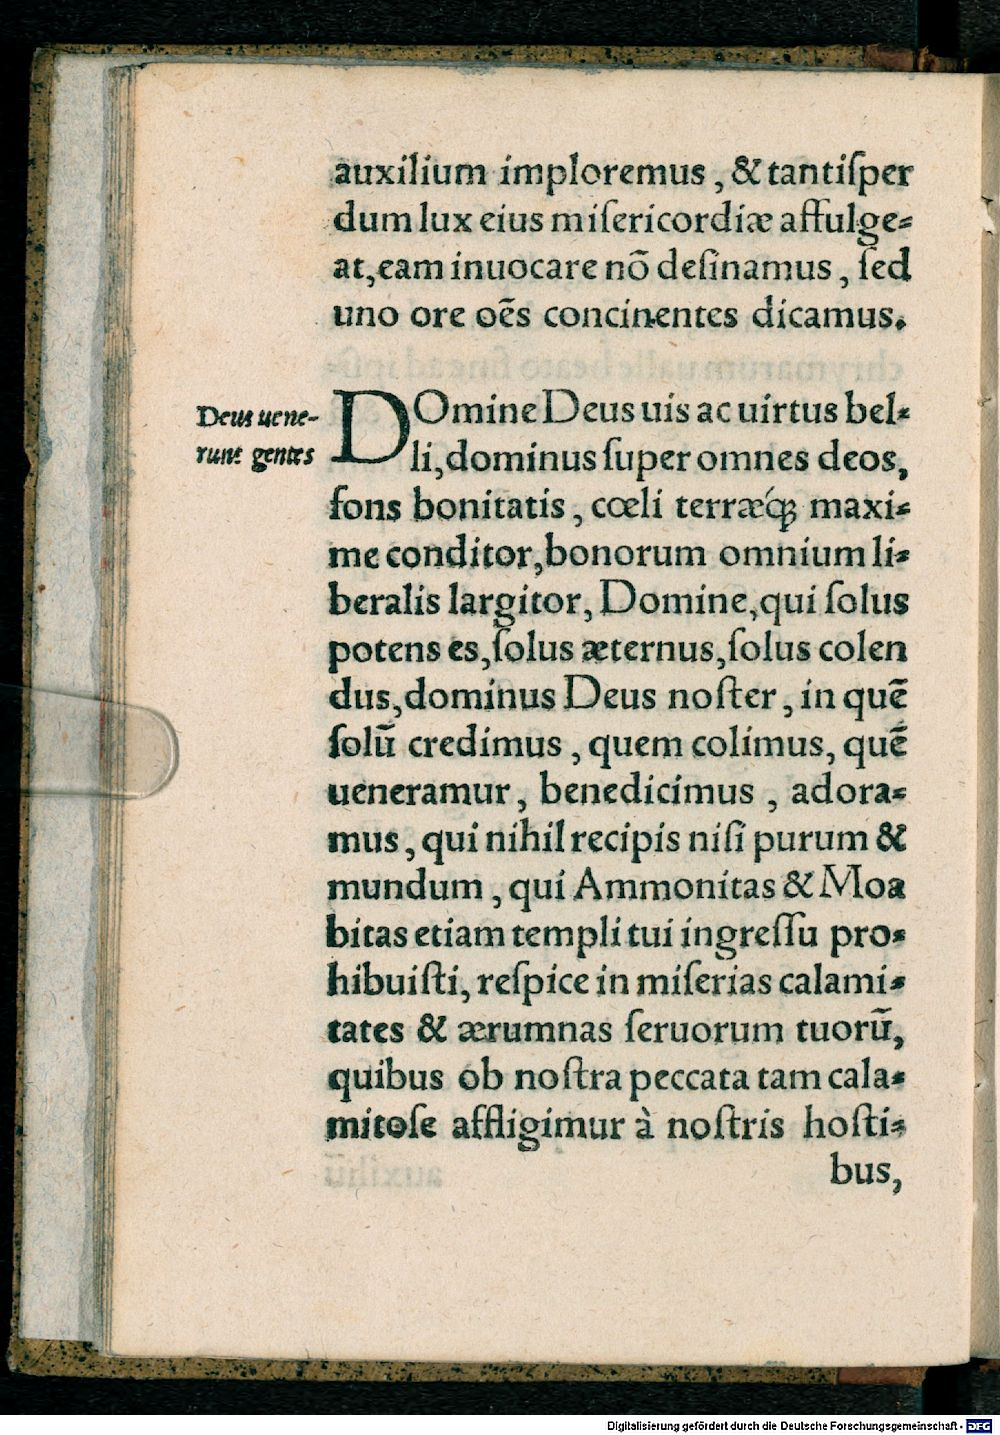 auxilium imploremus, & tantiſper
dum lux eius miſericordiæ affulge⸗
at, eam inuocare nõ deſinamus, ſed
uno ore oẽs concinentes dicamus.
Deus uene-
runt gentes
DOmine Deus uis ac uirtus bel⸗
li, dominus ſuper omnes deos,
fons bonitatis, cœli terræq́; maxi⸗
me conditor, bonorum omnium li⸗
beralis largitor, Domine, qui ſolus
potens es, ſolus æternus, ſolus colen
dus, dominus Deus noſter, in quẽ
ſolũ credimus, quem colimus, quẽ
ueneramur, benedicimus, adora⸗
mus, qui nihil recipis niſi purum &
mundum, qui Ammonitas & Moa
bitas etiam templi tui ingreſſu pro⸗
hibuiſti, reſpice in miſerias calami⸗
tates & ærumnas ſeruorum tuorũ,
quibus ob noſtra peccata tam cala⸗
mitoſe affligimur à noſtris hoſti⸗
bus,
Digitalisierung gefördert durch die Deutsche Forschungsgemeinschaft - DFG